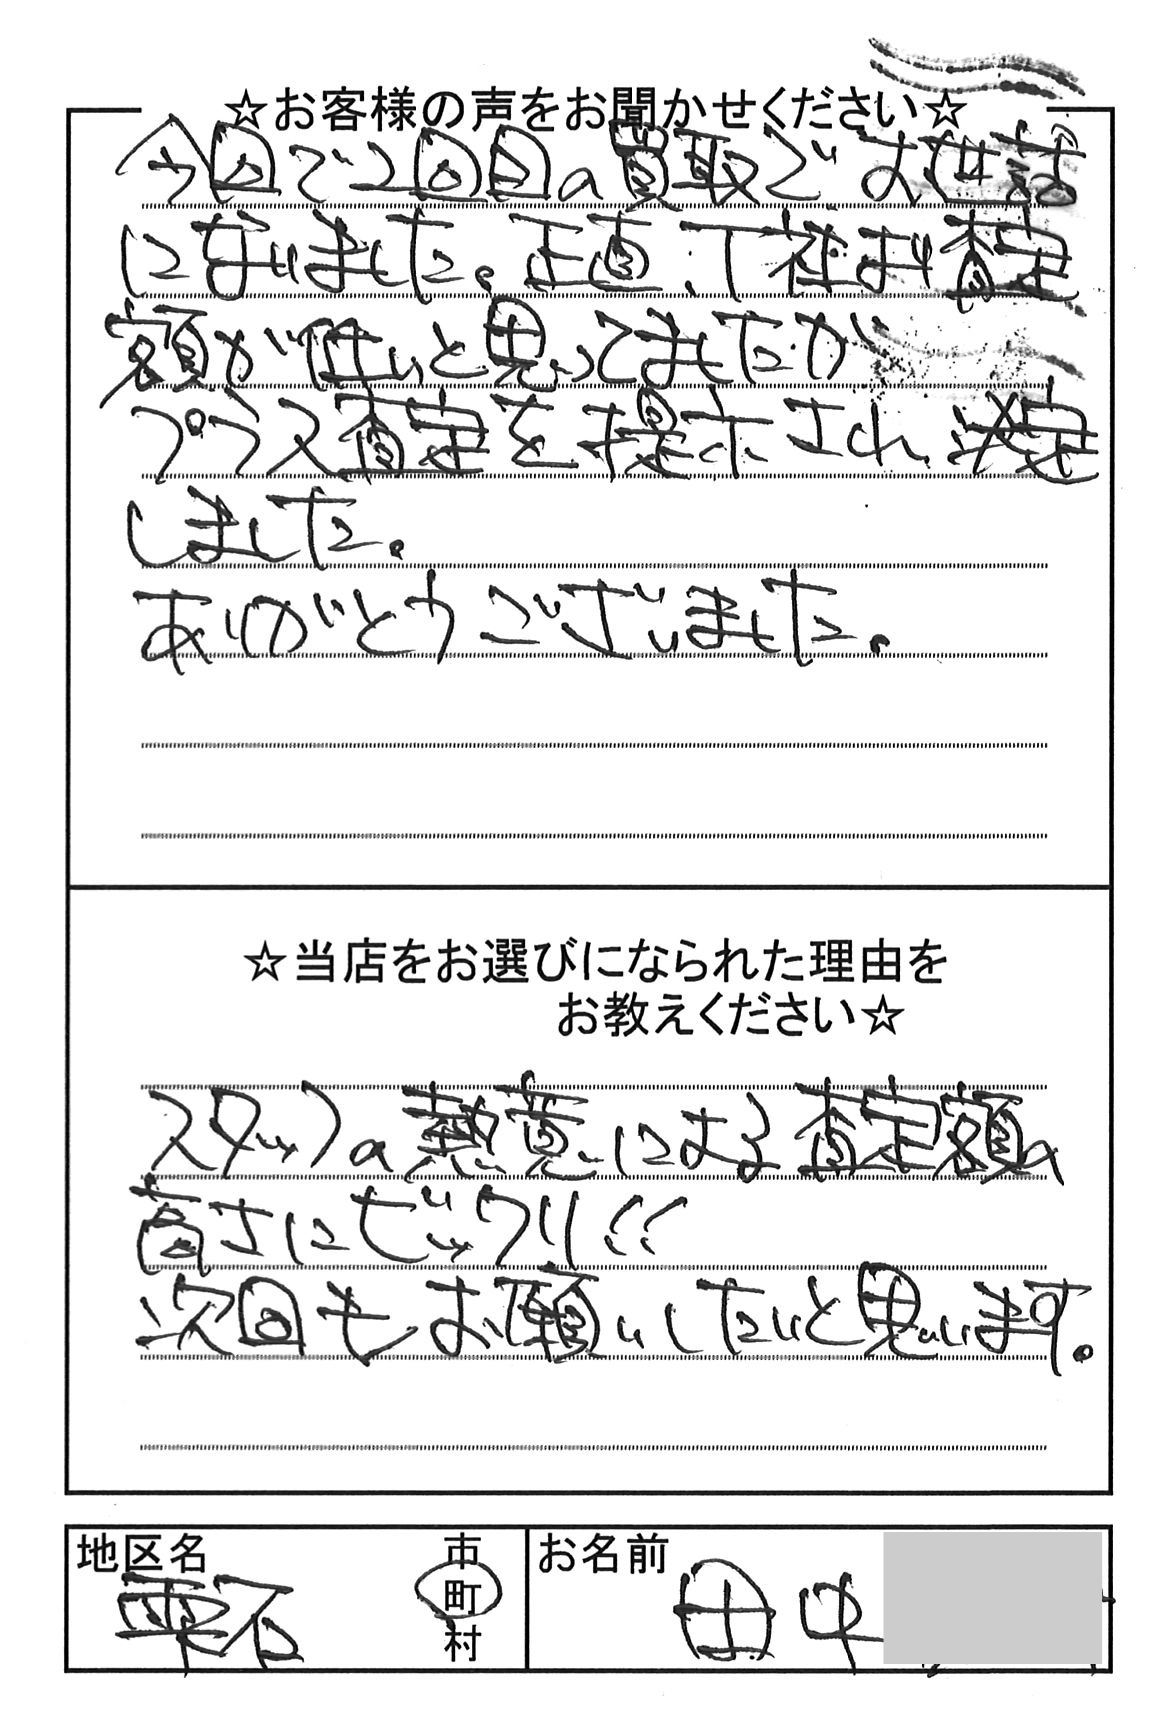 ☆お客様の声をお聞かせください☆
今回で2回目の買取でお世話
になりました。正直、T社より査定
額が低いと思ってましたが
プラス査定を提示され、決定
しました。
ありがとうございました。
☆当店をお選びになられた理由を
お教えください☆
スタッフの熱意による査定額の
高さにビックリ!!
次回もお願いしたいと思います。
地区名
雫石
市
町
村
お名前
田中